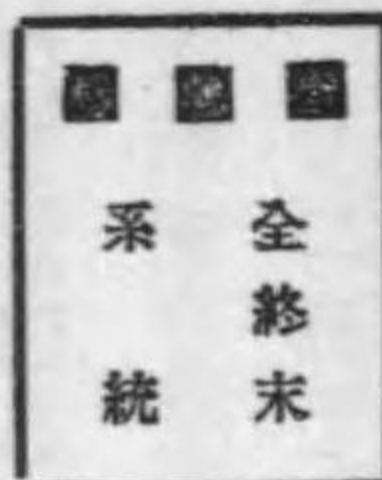 全終末
系統